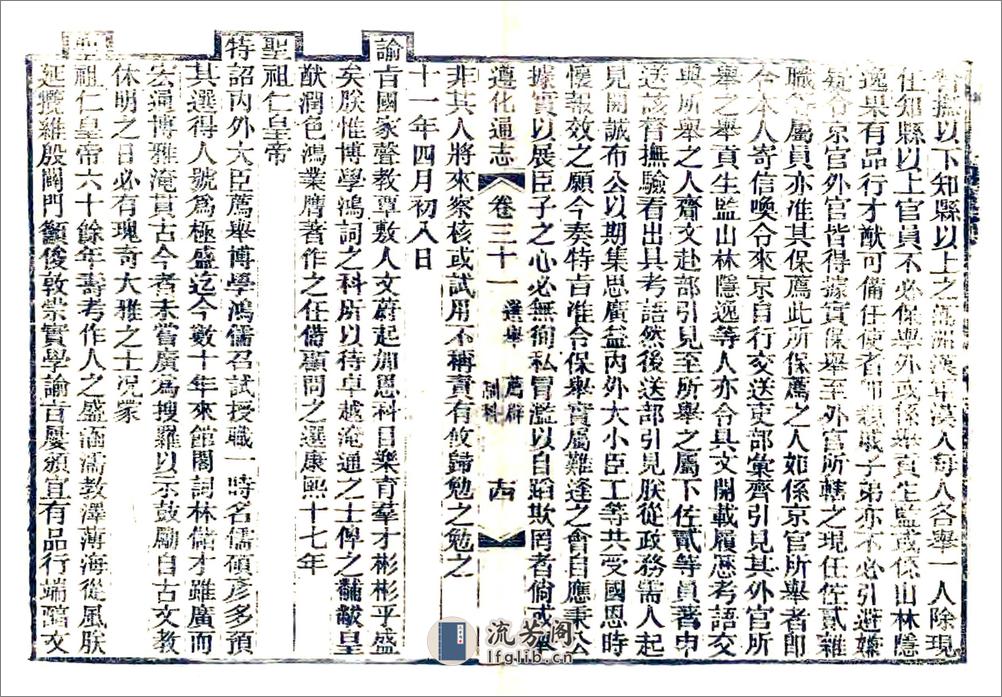 督撫以下知縣以上之無論滿漢軍漢人每人各舉一人除現
任知縣以上官員不必保舉外或係舉貢生監或係山林隱
逸果有品行才猷可備任使者即親戚子弟亦不必引避嫌
疑令京官外官皆得據實保舉至外官所轄之現任佐貳雜
職等屬員亦准其保薦此所保薦之人如係京官所舉者即
令本人寄信喚令來京自行交送吏部彙齊引見其外官所
舉之舉貢生監山林隱逸等人亦令具文開載履歷考語交
與所舉之人齎文赴部引見至所舉之屬下佐貳等員著申
送該督撫驗看出具考語然後送部引見朕從政務需人起
見開誠布公以期集思廣益內外大小臣工等共受國恩時
懷報效之願今奏特旨准令保舉實屬難逢之會自應秉公
據實以展臣子之心必無徇私冒濫以自蹈欺罔者倘或舉
遵化通志 卷三十一 選舉 薦辟 制科
非其人將來察核或試用不稱責有攸歸勉之勉之
十一年四月初八日
諭旨國家聲教覃敷人文蔚起加恩科目樂育羣才彬彬乎盛
矣朕惟博學鴻詞之科所以待卓越淹通之士俾之黼黻皇
猷潤色鴻業膺著作之任備顧問之選康熙十七年
聖祖仁皇帝
特詔內外大臣薦舉博學鴻儒召試授職一時名儒碩彥多預
其選得人號為極盛迄今數十年來館閣詞林儲才雖廣而
宏通博雅淹貫古今者未嘗廣為搜羅以示鼓勵自古文教
休明之日必有瑰奇大雅之士況蒙
聖祖仁皇帝六十餘年壽考作人之盛涵濡教澤薄海從風朕
延攬維殷闢門籲俊敦崇實學諭旨屢頒宜有品行端醇文
流芳阁
lfglib.cn